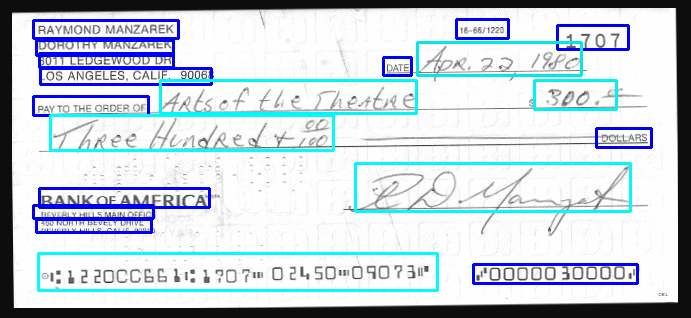 RAYMOND MANZAREK
DOROTHY MANZAREK
8011 LEDGEWOOD DR
LOS ANGELES, CALIF. 90068
16-66/1220
1707
DATE APR. 22, 1980
PAY TO THE ORDER OF Arts of the Theatre $ 300.00
Three Hundred + 00/100 DOLLARS
BANK OF AMERICA
BEVERLY HILLS MAIN OFFICE
460 NORTH BEVERLY DRIVE
BEVERLY HILLS, CALIF.
R D Manzarek
⑆122000661⑆1707⑈02450⑉09073⑈ ⑈0000030000⑈